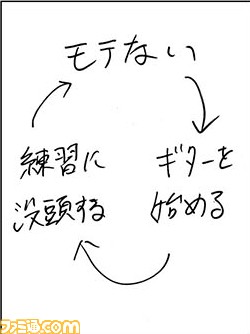 モテない
ギターを
始める
練習に
没頭する
ファミ通.com